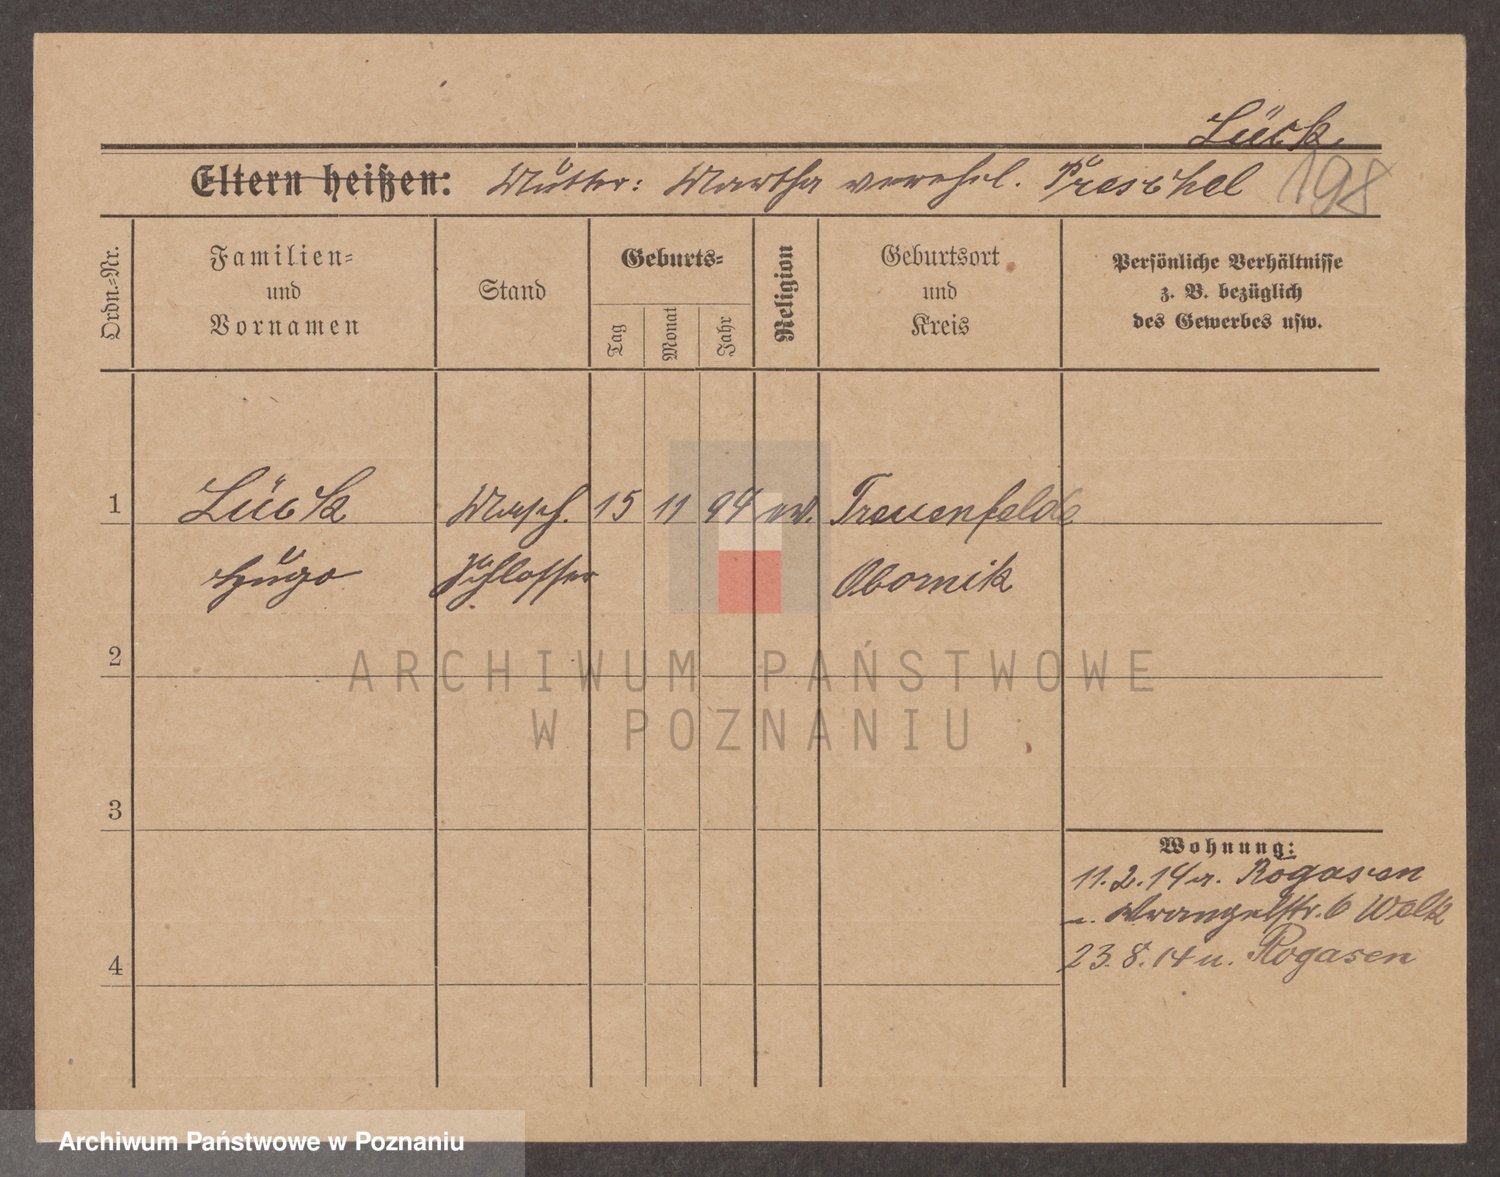 Lück.
Eltern heißen: Mutter: Martha verehel. Preschel
198
Ordn.-Nr.
Familien-
und
Vornamen
Stand
Geburts-
Tag
Monat
Jahr
Religion
Geburtsort
und
Kreis
Persönliche Verhältnisse
z. B. bezüglich
des Gewerbes usw.
1
Lück
Masch.
15
11
94
ev.
Treuenfelde
Hugo
Schlosser
Obornik
2
ARCHIWUM PAŃSTWOWE
W POZNANIU
3
Wohnung:
11.2.14 v. Rogasen
n. Wrangelstr. 6 Welk
4
23.8.14 u. Rogasen
Archiwum Państwowe w Poznaniu